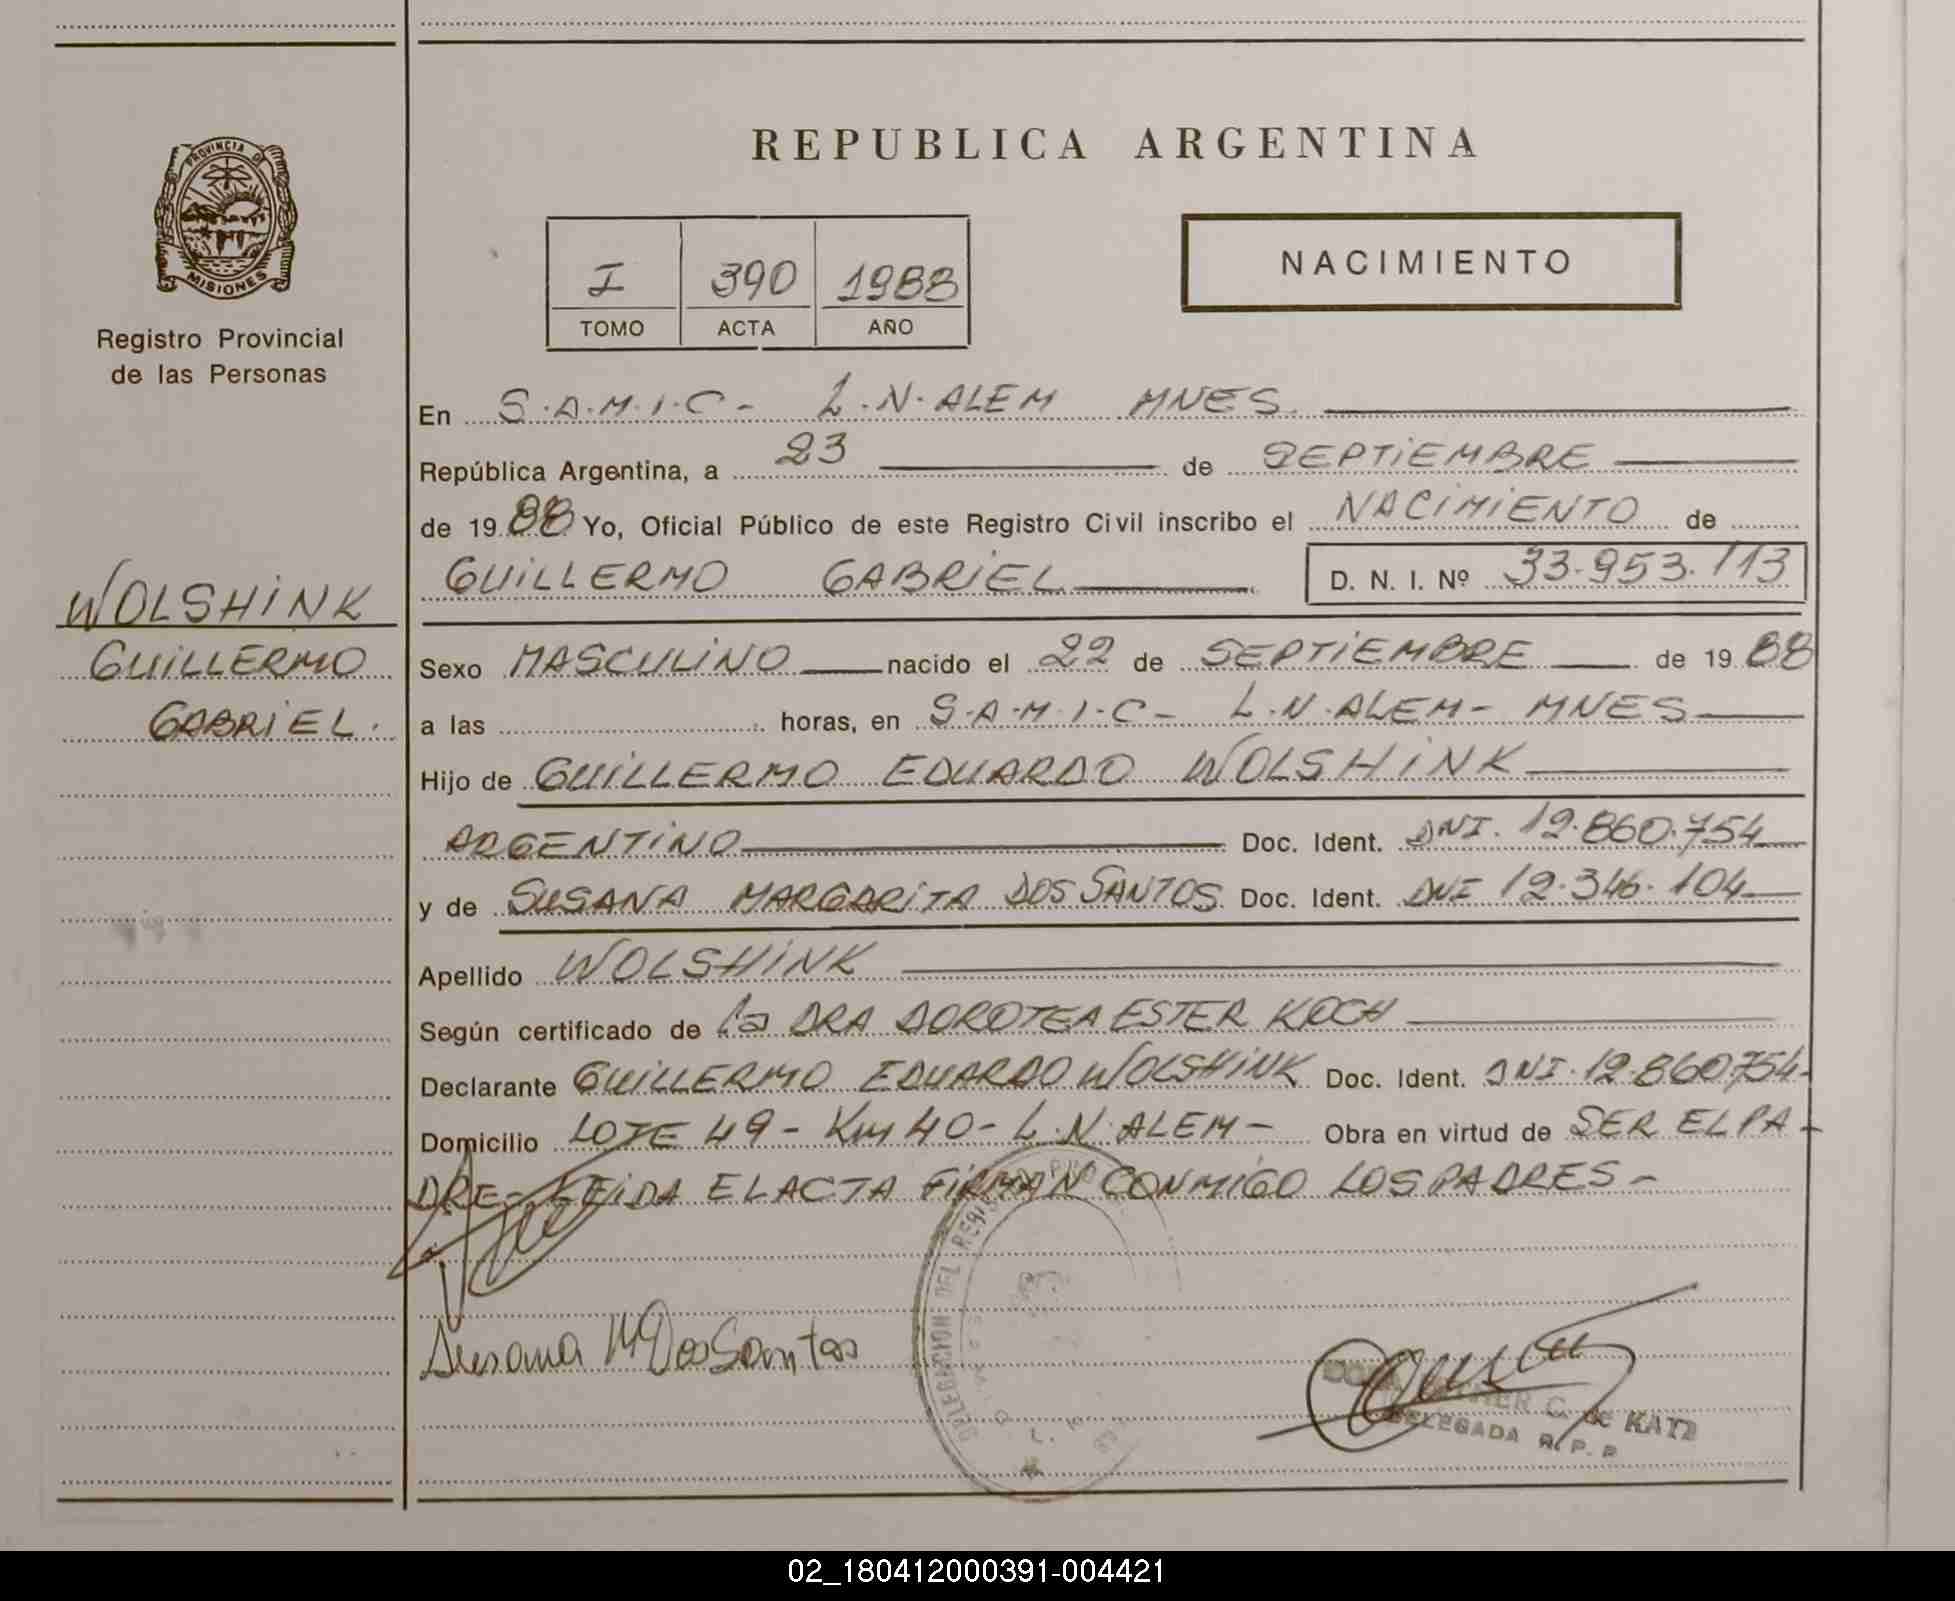 REPUBLICA ARGENTINA
PROVINCIA DE
MISIONES
Registro Provincial
de las Personas
I 390 1988
TOMO ACTA AÑO
NACIMIENTO
En S.A.M.I.C- L.N.ALEM MNES
República Argentina, a 23 de SEPTIEMBRE
de 19 88 Yo, Oficial Público de este Registro Civil inscribo el NACIMIENTO de
GUILLERMO GABRIEL D. N. I. Nº 33.953.113
WOLSHINK
GUILLERMO
GABRIEL.
Sexo MASCULINO nacido el 22 de SEPTIEMBRE de 19 88
a las horas, en S.A.M.I.C- L.N.ALEM- MNES
Hijo de GUILLERMO EDUARDO WOLSHINK
ARGENTINO Doc. Ident. DNI. 12.860.754
y de SUSANA MARGARITA DOS SANTOS Doc. Ident. DNI 12.346.104
Apellido WOLSHINK
Según certificado de la DRA DOROTEA ESTER KOCH
Declarante GUILLERMO EDUARDO WOLSHINK Doc. Ident. DNI.12.860754-
Domicilio LOTE 49- Km 40- L.N.ALEM- Obra en virtud de SER EL PA-
DRE- LEIDA EL ACTA FIRMAN CONMIGO LOS PADRES-
Susana M Dos Santos
DELEGACION DEL REGISTRO
C. de KATZ
DELEGADA R. P. P.
02_180412000391-004421